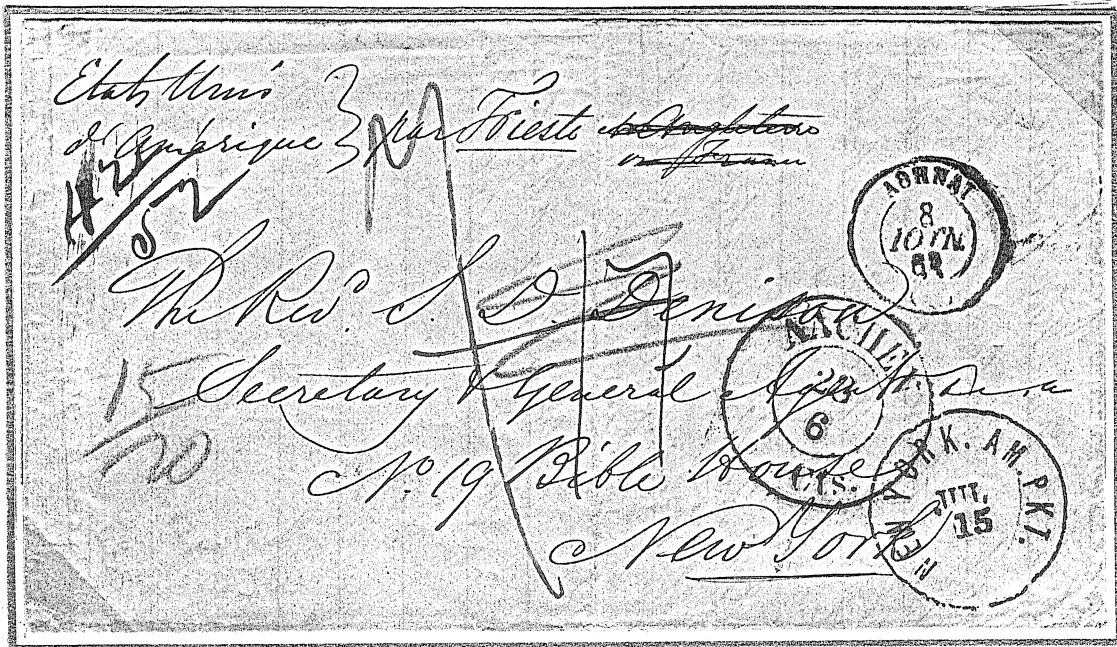 Etats Unis
d'Amérique } par Trieste
The Rev. S. D. Denison
Secretary & General Agent
No. 19 Bible House
New York
42
52
15
20
ΑΘΗΝΑΙ
8
ΙΟΥΝ.
AACHEN
6
Cts.
NEW YORK. AM. PKT.
15